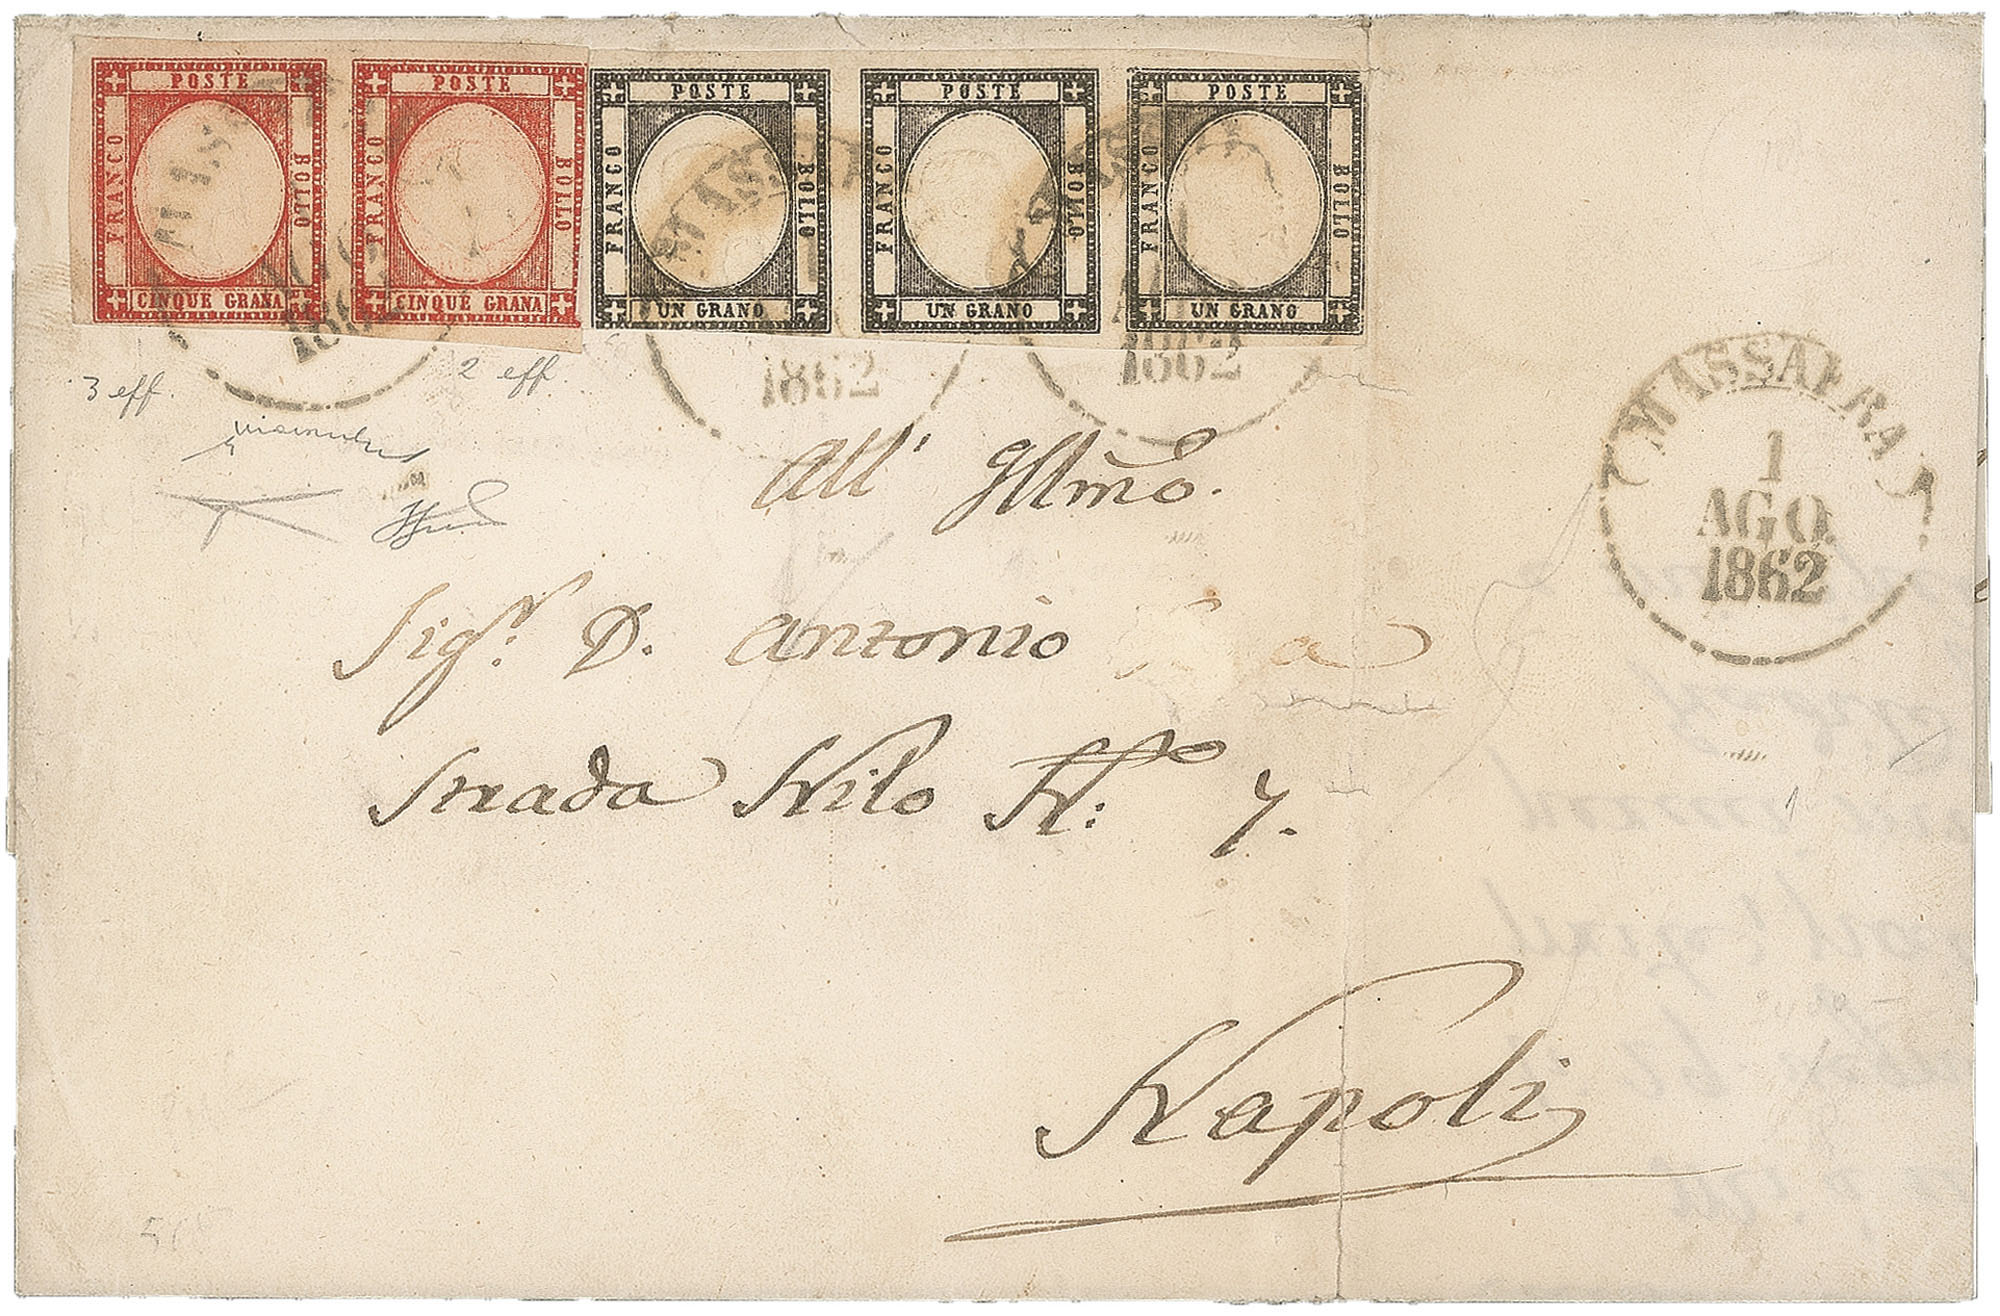 POSTE
FRANCO
BOLLO
CINQUE GRANA
POSTE
FRANCO
BOLLO
CINQUE GRANA
POSTE
FRANCO
BOLLO
UN GRANO
POSTE
FRANCO
BOLLO
UN GRANO
POSTE
FRANCO
BOLLO
UN GRANO
1862
1862
1862
3 eff.
2 eff.
MASSAFRA
1
AGO.
1862
All' Illmo.
Sigr. D. Antonio
Strada Nilo No: 7.
Napoli